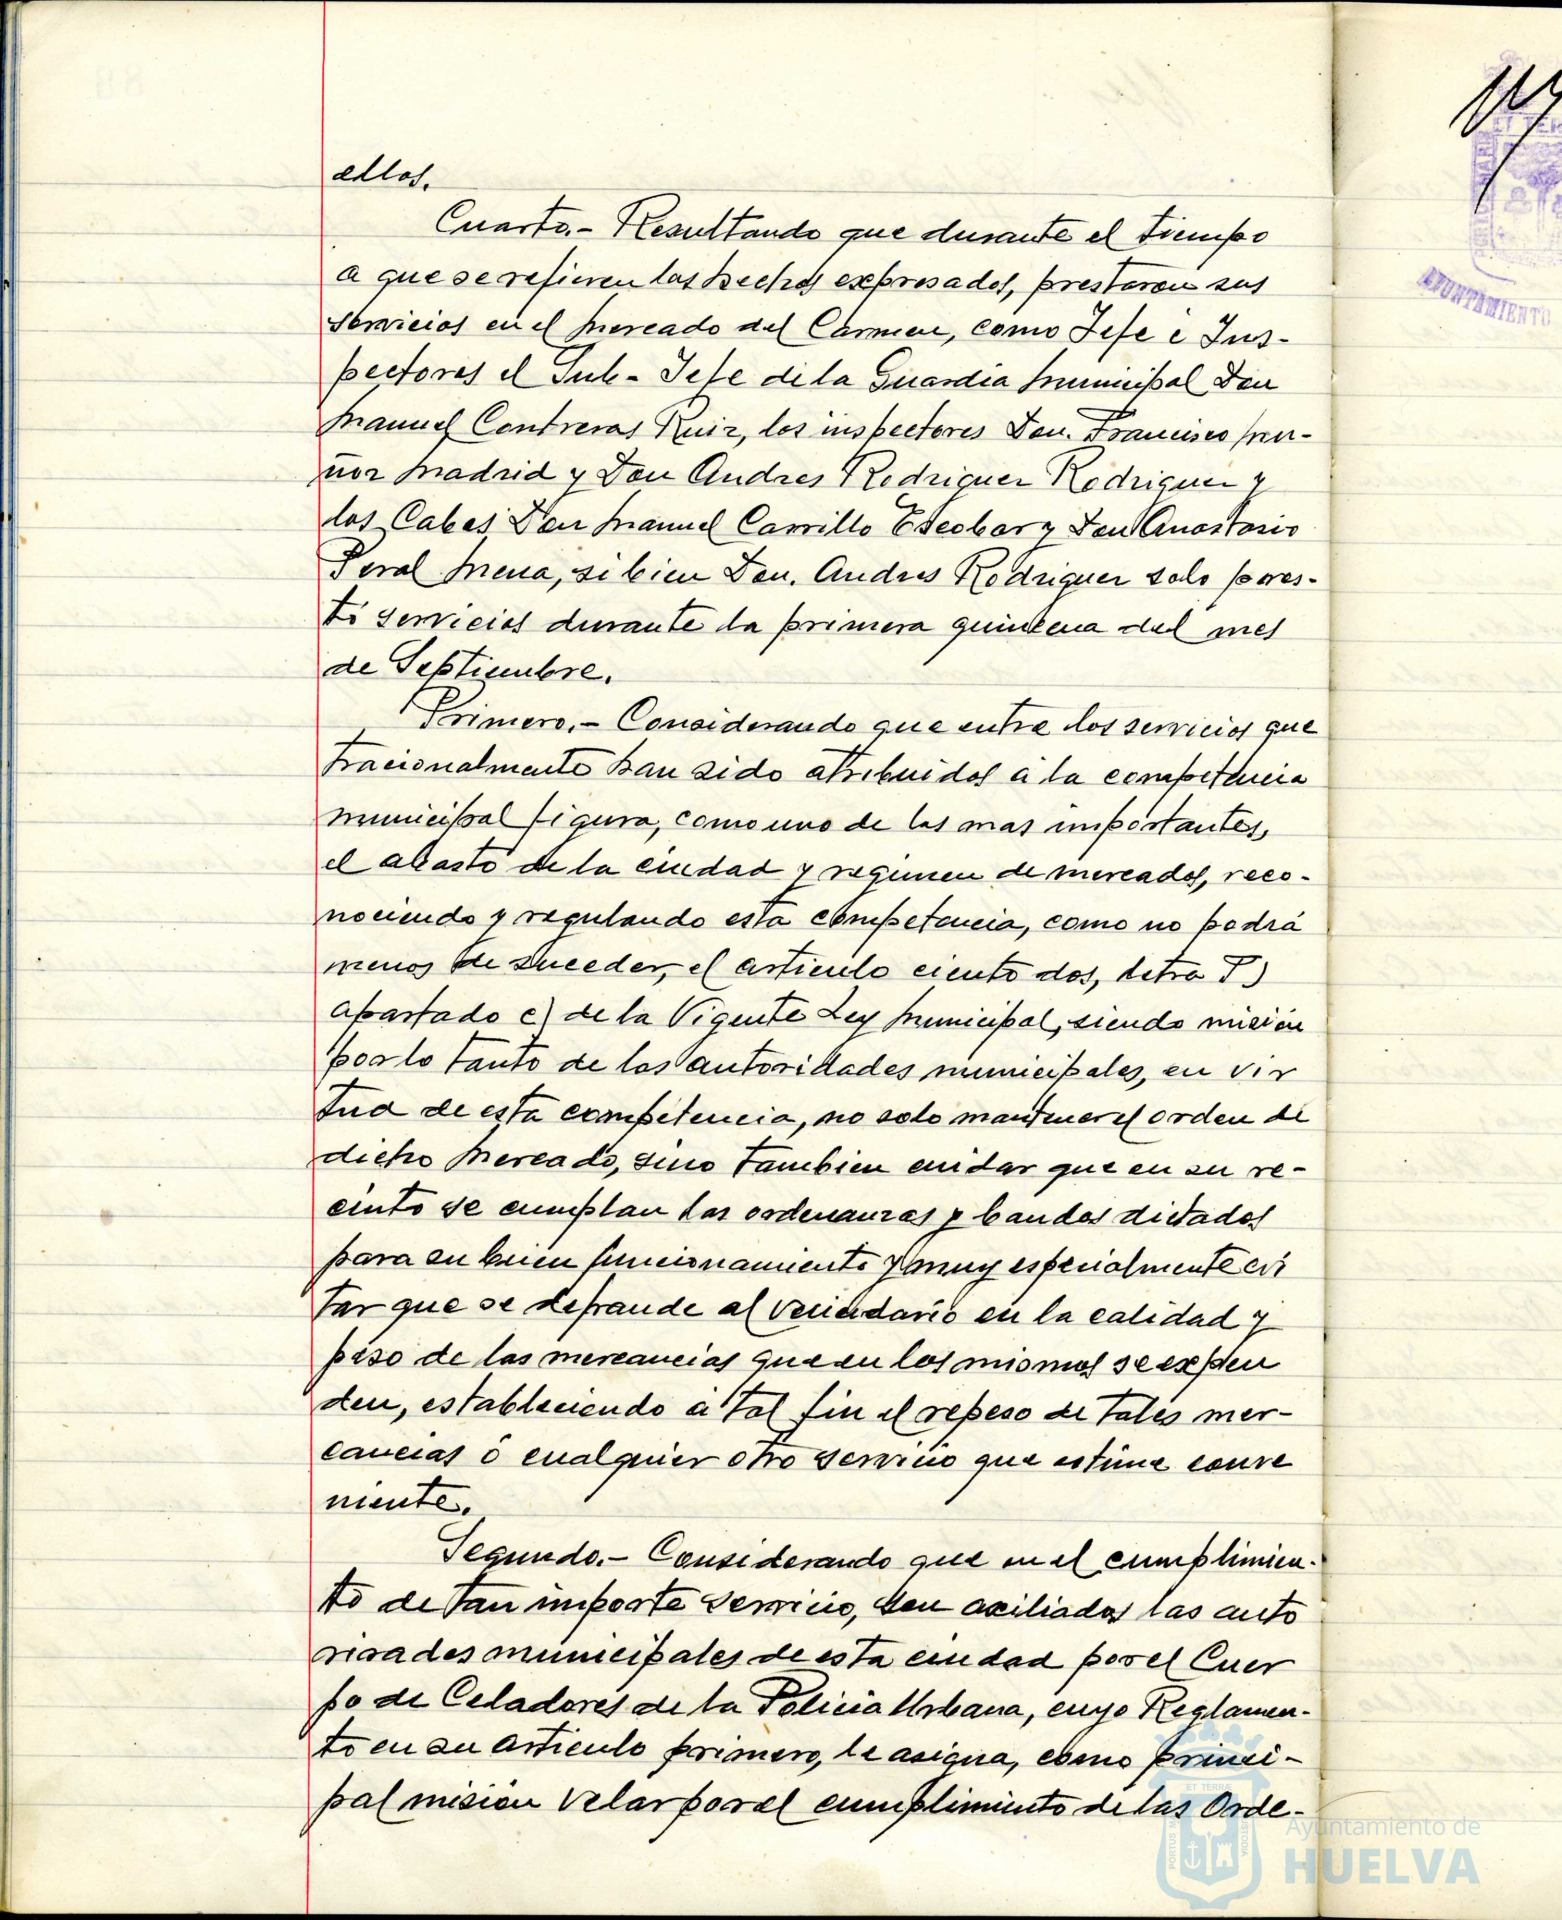 ellos.
Cuarto.- Resultando que durante el tiempo
a que se refieren los hechos expresados, prestaron sus
servicios en el Mercado del Carmen, como Jefe é Ins-
pectores el Sub-Jefe de la Guardia Municipal Don
Manuel Contreras Ruiz, los inspectores Don. Francisco Mu-
ñoz Madrid y Don Andres Rodriguez Rodriguez y
los Cabos Don Manuel Carrillo Escobar y Don Anastasio
Peral Mena, si bien Don. Andres Rodriguez solo pres-
tó servicios durante la primera quincena del mes
de Septiembre.
Primero.- Considerando que entre los servicios que
tracionalmente han sido atribuidos a la competencia
municipal figura, como uno de los mas importantes,
el abasto de la ciudad y regimen de mercados, reco-
nociendo y regulando esta competencia, como no podrá
menos de suceder, el articulo ciento dos, letra
apartado c) de la Vigente Ley Municipal, siendo misión
por lo tanto de las autoridades municipales, en vir
tud de esta competencia, no solo mantener el orden de
dicho Mercado, sino tambien cuidar que en su re-
cinto se cumplan las ordenanzas y bandos dictados
para su buen funcionamiento y muy especialmente evi
tar que se defraude al vecindario en la calidad y
peso de las mercancias que en los mismos se expen
den, estableciendo a tal fin el repeso de tales mer-
cancias ó cualquier otro servicio que estime conve
niente.
Segundo.- Considerando que en el cumplimien-
to de tan importe servicio, son axiliados las auto
risades municipales de esta ciudad por el Cuer
po de Celadores de la Policia Urbana, cuyo Reglamen-
to en su articulo primero, le asigna, como princi-
pal misión velar por el cumplimiento de las Orde-
AYUNTAMIENTO
Ayuntamiento de
HUELVA